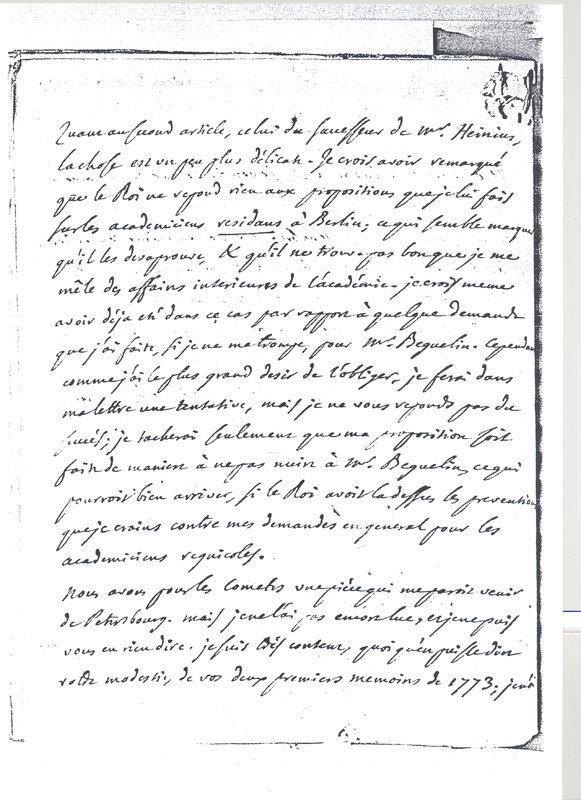 Quant au second article, celui du successeur de Mr. Heinius,
la chose est un peu plus délicate. Je crois avoir remarqué
que le Roi ne repond rien aux propositions que je lui fais
sur les academiciens residans à Berlin; ce qui semble marquer
qu'il les desaprouve, & qu'il ne trouve pas bon que je me
mêle des affaires interieures de l'académie. je crois meme
avoir déja eté dans ce cas par rapport à quelque demande
que j'ai faite, si je ne me trompe, pour Mr. Beguelin. Cependant
comme j'ai le plus grand desir de l'obliger, je ferai dans
ma lettre une tentative, mais je ne vous reponds pas du
succès; je tacherai seulement que ma proposition soit
faite de maniere à ne pas nuire à Mr. Beguelin, ce qui
pourroit bien arriver, si le Roi avoit là dessus les preventions
que je crains contre mes demandes en general pour les
academiciens regnicoles.
Nous avons pour les Cometes une piéce qui me paroit venir
de Petersbourg. mais je ne l'ai pas encor lue, et je ne puis
vous en rien dire. je suis très content, quoi qu'en puisse dire
votre modestie, de vos deux premiers memoires de 1773; j'en ai